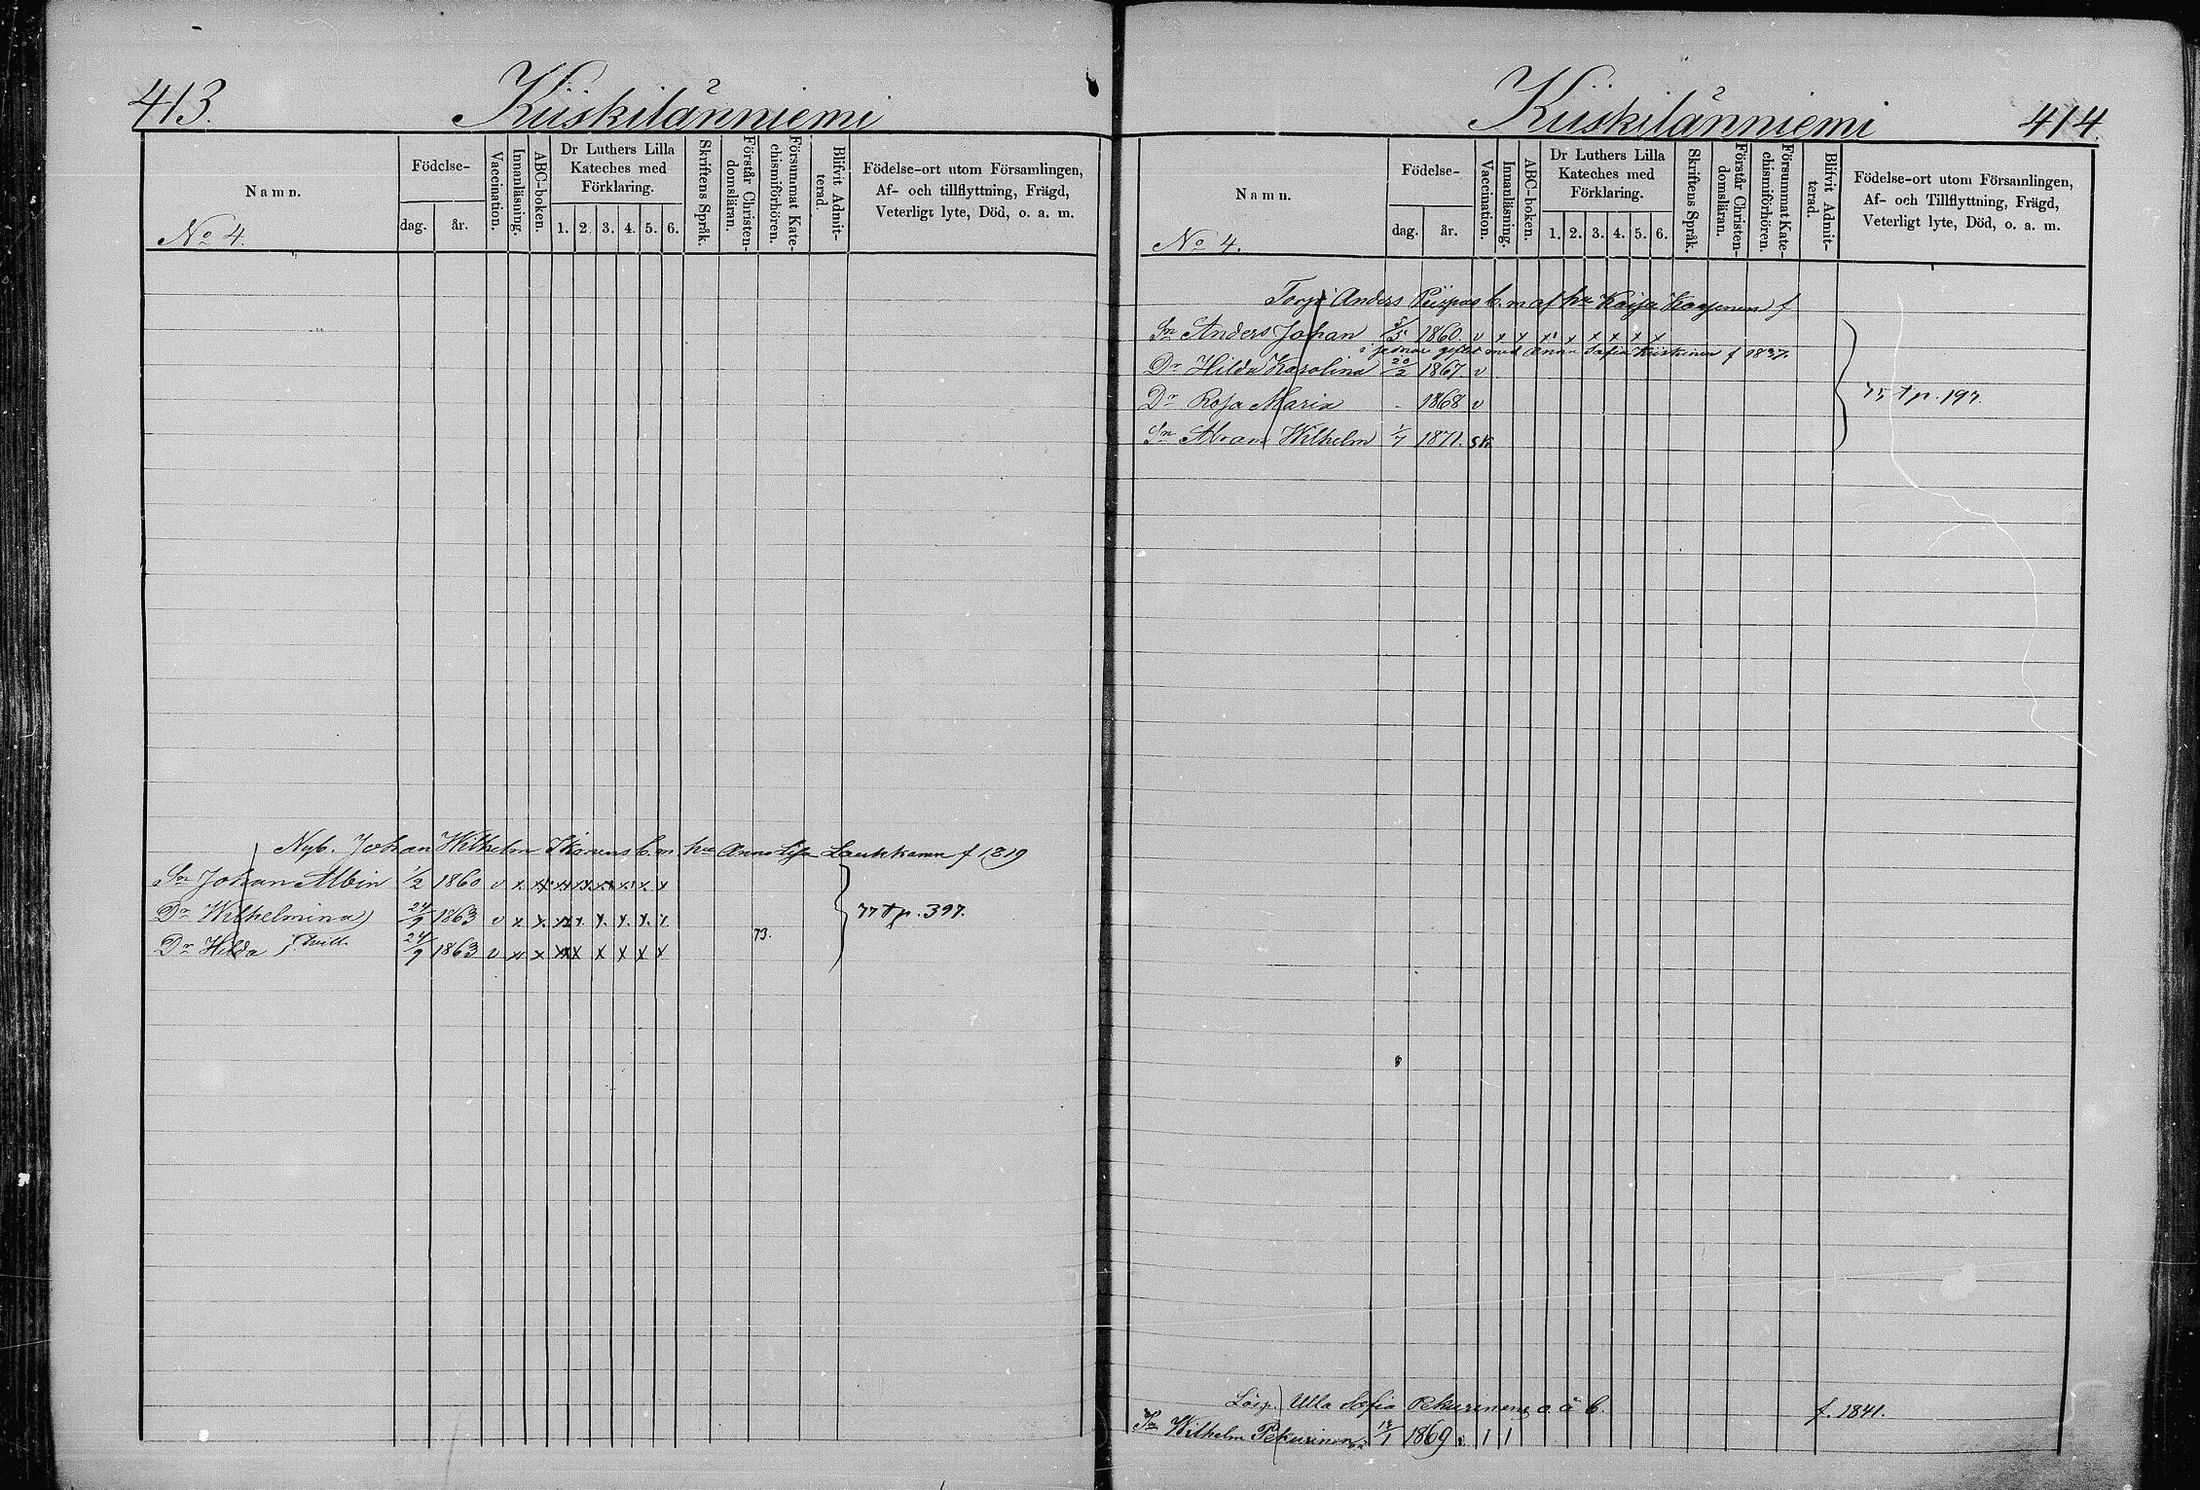 413.
Kiiskilänniemi
Namn.
Födelse-
dag.
år.
Vaccination.
Innanläsning.
ABC-boken.
Dr Luthers Lilla
Kateches med
Förklaring.
1. 2. 3. 4. 5. 6.
Skriftens Språk.
Förstår Christen-
domsläran.
Försummat Kate-
chismiförhören.
Blifvit Admit-
terad.
Födelse-ort utom Församlingen,
Af- och tillflyttning, Frägd,
Veterligt lyte, Död, o. a. m.
No 4.
Nyb. Johan Wilhelm Ikonens b. m hu Anna Lisa Laukkanen f 1819
Sn Johan Albin 1/2 1860 v x x x x x x x x
Dr Wilhelmina 24/9 1863 v x x x x x x x x
Dr Hilda tvill. 24/9 1863 v x x x x x x x x 73.
77 t p. 397.
Kiiskilänniemi
414
Namn.
Födelse-
dag.
år.
Vaccination.
Innanläsning.
ABC-boken.
Dr Luthers Lilla
Kateches med
Förklaring.
1. 2. 3. 4. 5. 6.
Skriftens Språk.
Förstår Christen-
domsläran.
Försummat Kate-
chismiförhören.
Blifvit Admit-
terad.
Födelse-ort utom Församlingen,
Af- och Tillflyttning, Frägd,
Veterligt lyte, Död, o. a. m.
No 4.
Anders b. m af hu Kaisa f
Sn Anders Johan 1860 v x x x x x x x x
gift med Anna Sofia Kiiskinen f 1837.
Dr Hilda Karolina 20/2 1867. v
Dr Rosa Maria - 1868 v
Sn Abram Wilhelm 1/7 1871. sk.
75 t p. 197.
Lösp. Ulla Sofia Pekurinens o. ä b. f. 1841.
Sn Wilhelm Pekurinen 1869 v. 1 1